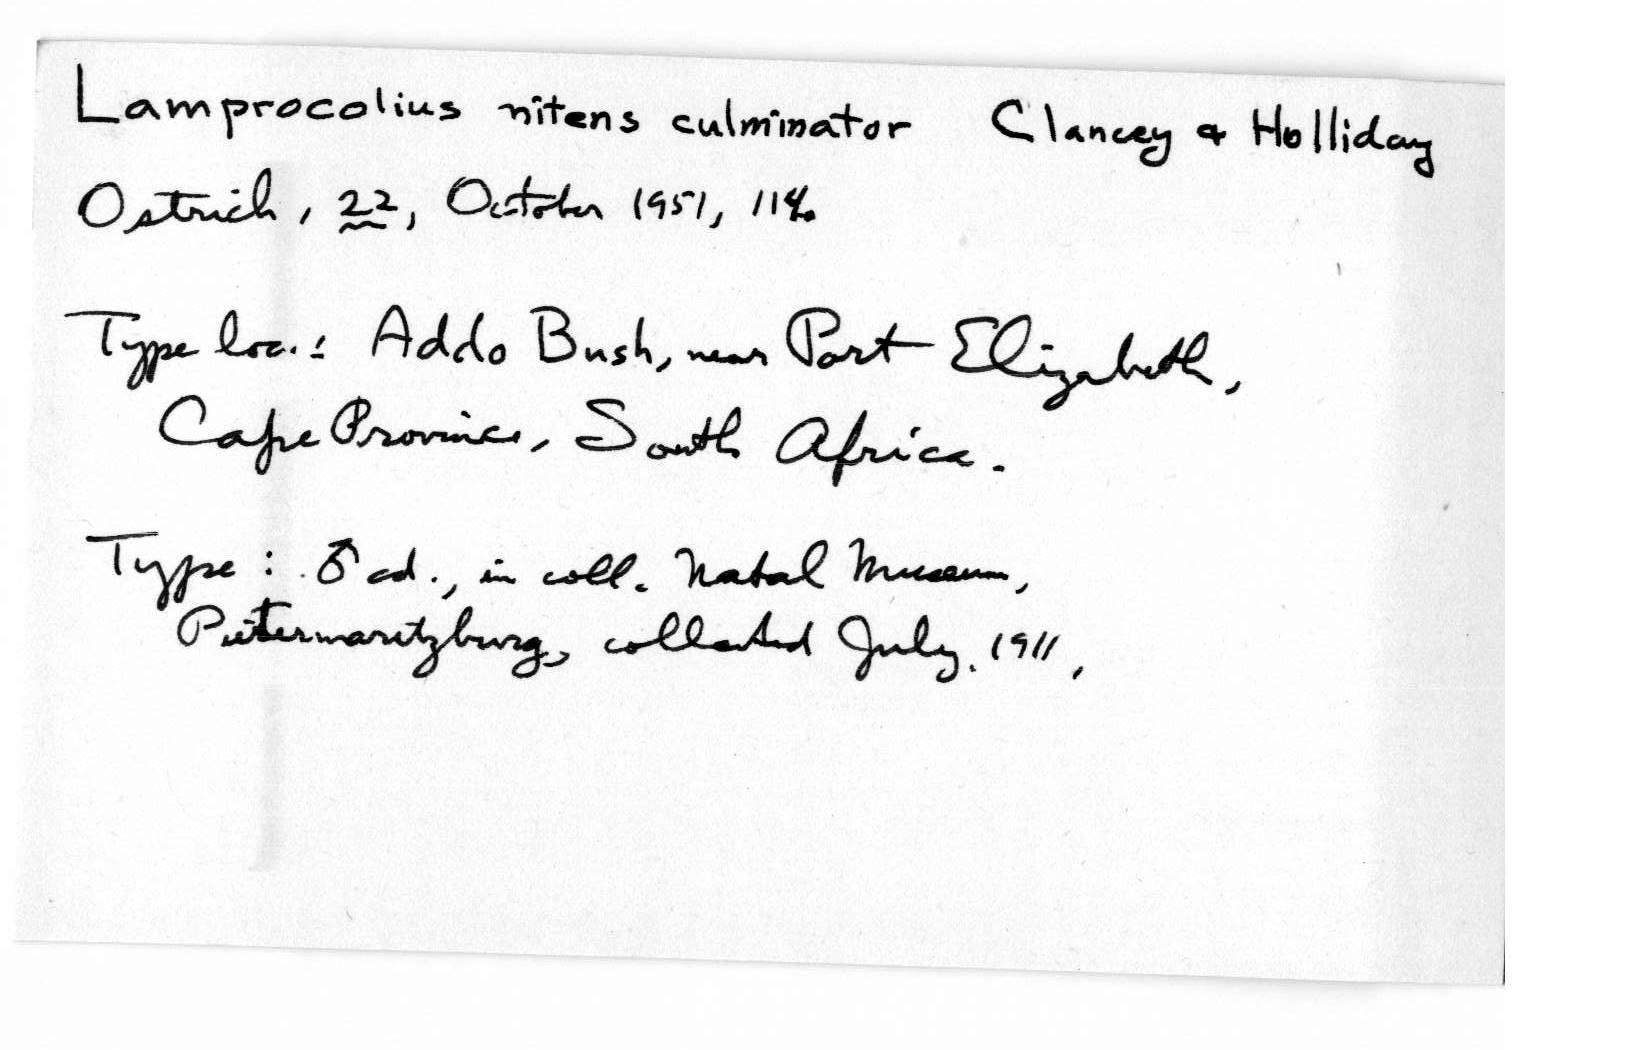 Lamprocolius nitens culminator Clancey & Holliday
Ostrich, 22, October 1951, 114.
Type loc.: Addo Bush, near Port Elizabeth,
Cape Province, South Africa.
Type: ♂ ad., in coll. Natal Museum,
Pietermaritzburg, collected July, 1911,